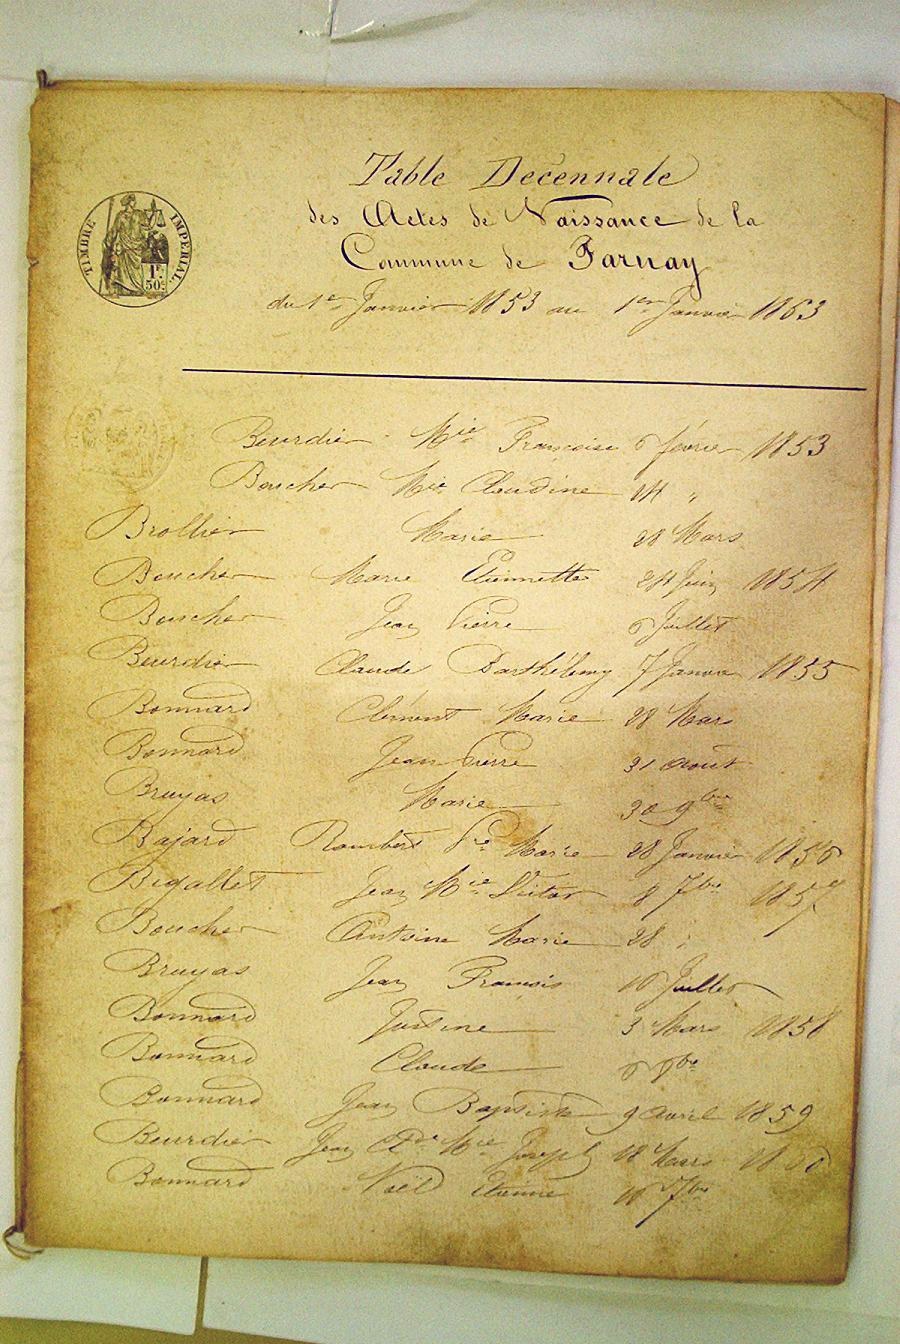 Table Décennale
des Actes de Naissance de la
Commune de Farnay
du 1er Janvier 1853 au 1er Janvier 1863
TIMBRE IMPERIAL
1F.
50c.
Beurdier Mie Françoise 6 février 1853
Boucher Mie Claudine 14 "
Brollier Marie 28 Mars
Boucher Marie Etiennette 24 Juin 1854
Boucher Jean Pierre 6 Juillet
Beurdier Claude Barthélemy 7 Janvier 1855
Bonnard Clément Marie 28 Mars
Bonnard Jean Pierre 31 Août
Bruyas Marie 30 9bre
Bajard Rambert Marie 28 Janvier 1856
Bigallet Jean Mie Victor 8 7bre 1857
Boucher Antoine Marie 28 "
Bruyas Jean François 10 Juillet
Bonnard Justine 3 Mars 1858
Bonnard Claude 6 9bre
Bonnard Jean Baptiste 9 Avril 1859
Beurdier Jean Cde Mie Joseph 18 Mars 1860
Bonnard Noël Etienne 7bre